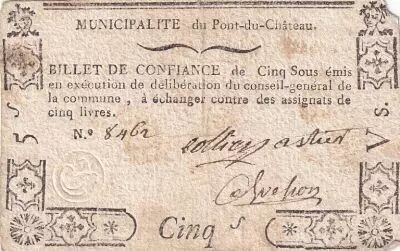 MUNICIPALITE du Pont-du-Château.
BILLET DE CONFIANCE de Cinq Sous émis
en exécution de délibération du conseil-general de
la commune, à échanger contre des assignats de
cinq livres.
N.º 8462
5 S
V S.
Cinq s